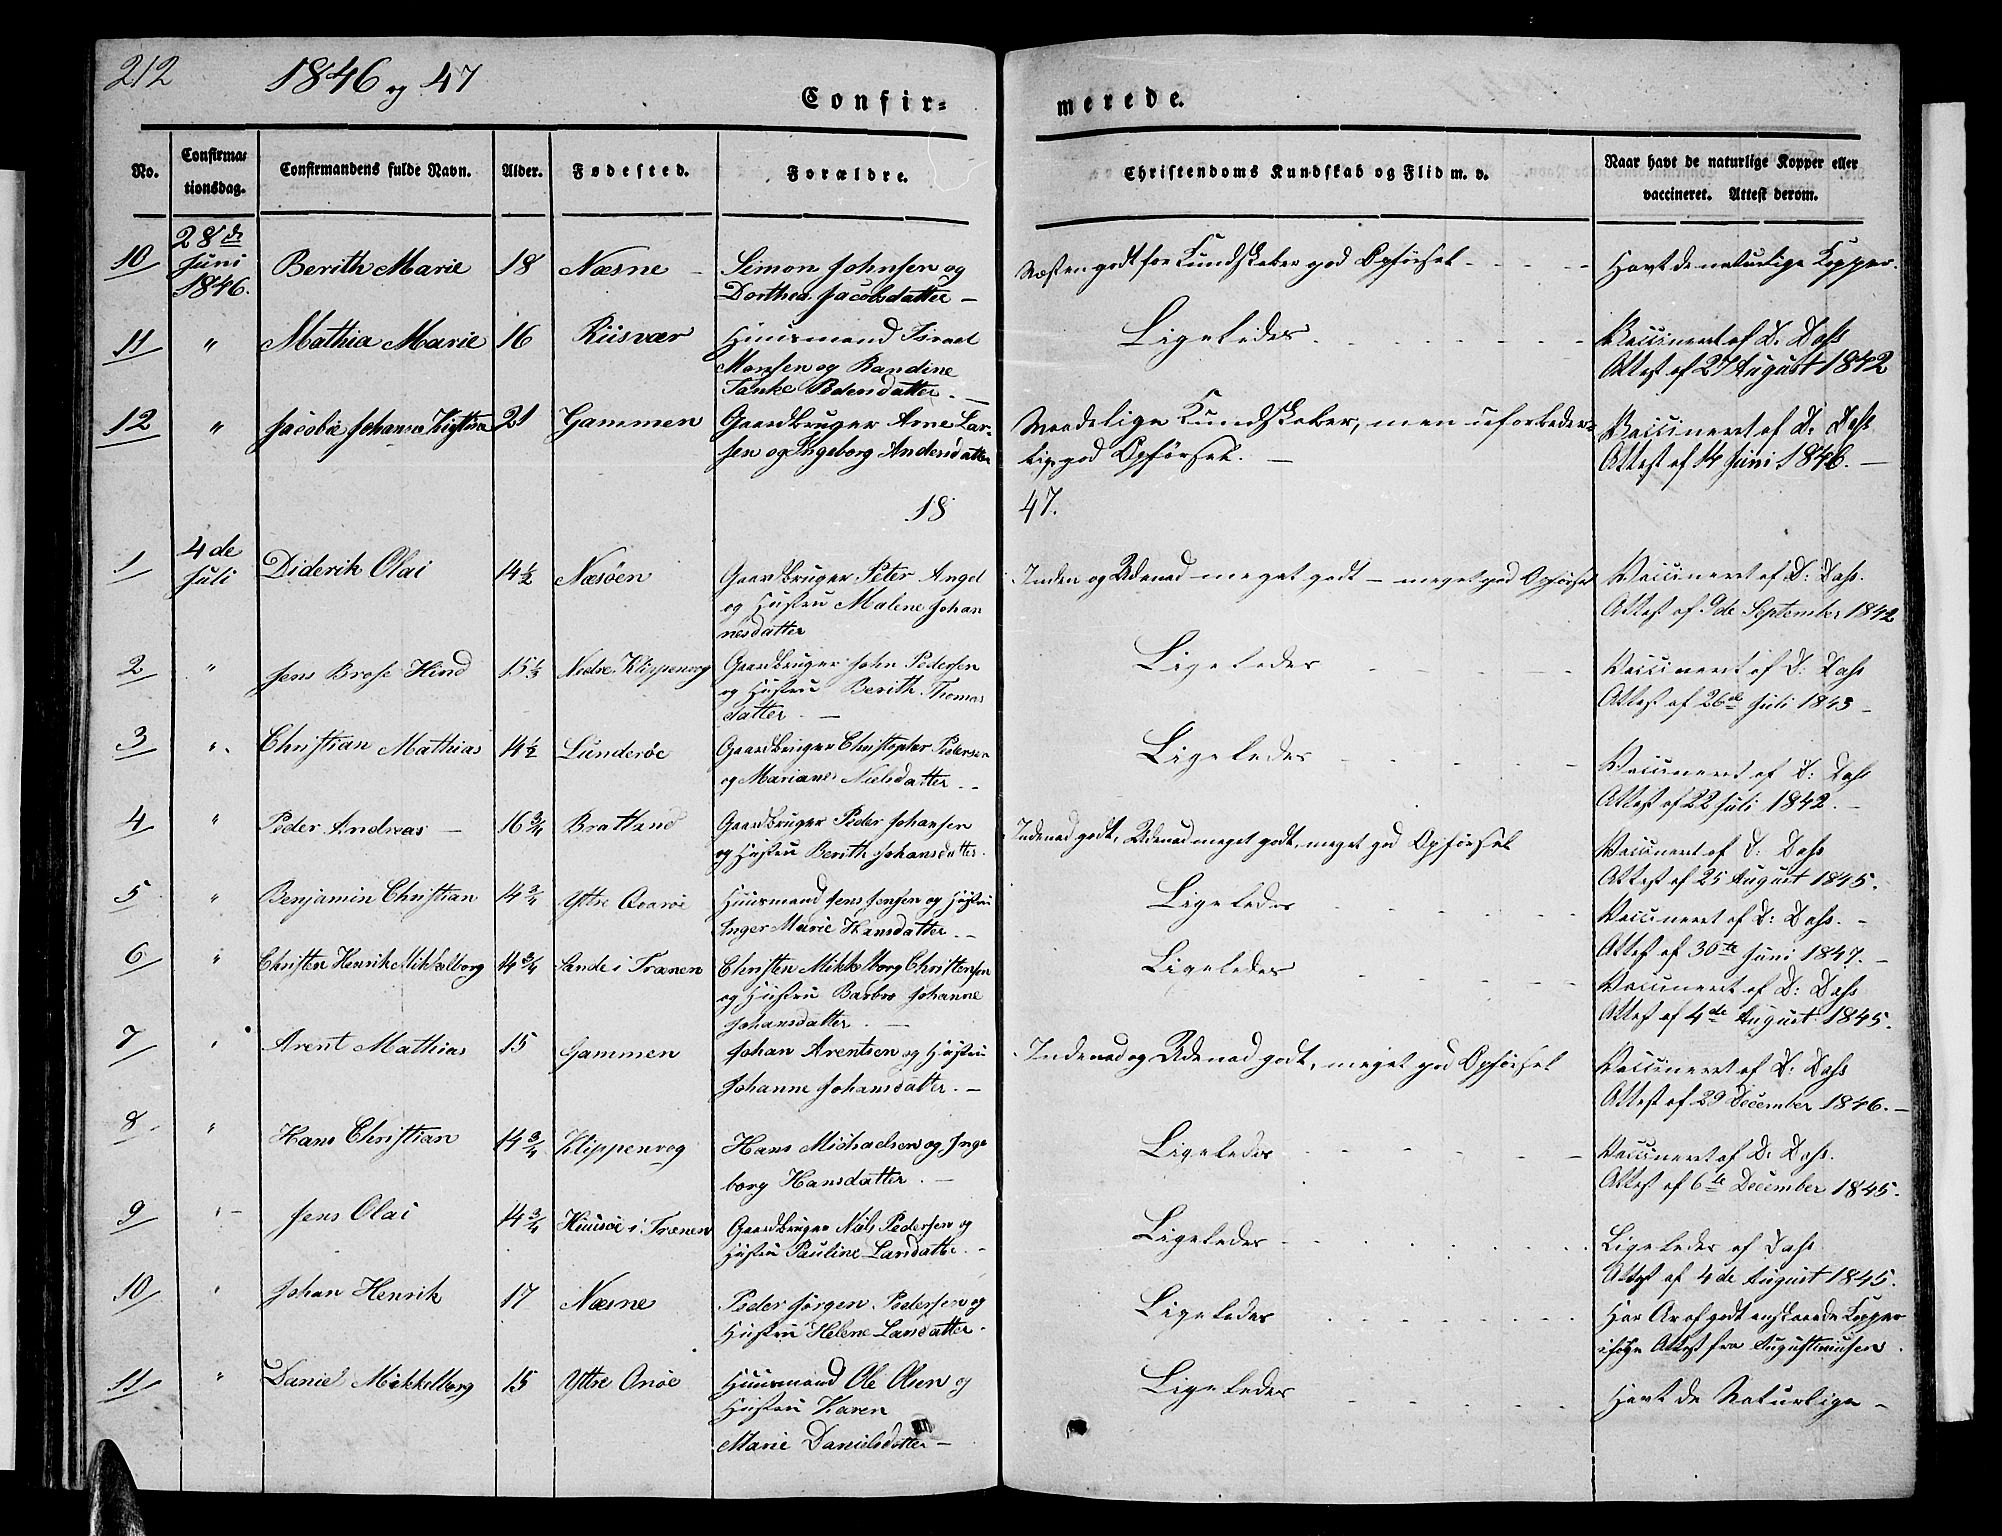 212
1846 og 47
Confir-
merede.
No.
Confirma-
tionsdag.
Confirmandens fulde Navn.
Alder.
Fødested.
Forældre.
Christendoms Kundskab og Flid m. v.
Naar havt de naturlige Kopper eller
vaccineret. Attest derom.
10 28de Juni 1846. Berith Marie 18 Næsne - Simon Johnsen og
Dorthea Jacobsdatter - Næsten godt for Kundskaber god Opførsel - Havt de naturlige Kopper.
11 " Mathia Marie 16 Riisvær Huusmand Israel
Monsen og Randine
Tanke Pedersdatter. - Ligeledes Vaccineret af D. Dass
Attest af 27 August 1842
12 " Jacobie Johanna 21 Gammen Gaardbruger Arne Lar-
sen og Ingeborg Andersdatter Maadelige Kundskaber, men uforbeder-
lig god Opførsel. - Vaccineret af D. Dass
Attest af 14 Juni 1846. -
18
47.
1 4de Juli Diderik Olai 14 1/2 Næsöen Gaardbruger Peter Angel
og Hustru Malene Johan
nesdatter Inden og Udenad meget godt - meget god Opførsel Vaccineret af D: Dass.
Attest af 9de September 1842
2 " Jens Brose Hind 15 1/2 Nedre Klippenvog Gaardbruger John Pedersen
og Hustru Berith Thomas
datter. - Ligeledes Vaccineret af D: Dass
Attest af 26de Juli 1843 -
3 " Christian Mathias 14 1/2 Lunderöe Gaardbruger Christopher Pedersen
og Mariane Nielsdatter. - Ligeledes Vaccineret af D: Dass
Attest af 22 Juli 1842. -
4 " Peder Andreas - 16 3/4 Bratland Gaardbruger Peder Johansen
og Hustru Berith Johansdatter. Indenad godt, Udenad meget godt, meget god Opførsel Vaccineret af D: Dass
Attest af 25 August 1845.
5 " Benjamin Christian 14 3/4 Yttre Huusmand Jens Jensen og Hustru
Inger Marie Hansdatter. - Ligeledes Vaccineret af D: Dass. -
Attest af 30te Juni 1847. -
6 " Christen Henrik Mikkelborg 14 3/4 Sande i Trænen Christen Mikkelborg Christensen
og Hustru Barbro Johanne
Johansdatter. - Ligeledes Vaccineret af D: Dass
Attest af 4de August 1845.
7 " Arent Mathias 15 Gammen Johan Arentsen og Hustru
Johanne Johansdatter. - Indenad og Udenad godt, meget god Opførsel Vaccineret af D: Dass
Attest af 29 December 1846. -
8 " Hans Christian 14 3/4 Klippenvog Hans Michaelsen og Inge
borg Hansdatter. - Ligeledes Vaccineret af D: Dass.
Attest af 6te December 1845.
9 " Jens Olai 14 3/4 Huusöe i Trænen Gaardbruger Niels Pedersen og
Hustru Pauline Larsdatter. - Ligeledes Ligeledes af Dass
Attest af 4de August 1845.
10 " Johan Henrik 17 Næsne Peder Jörgen Pedersen og
Hustru Helene Larsdatter. Ligeledes Har Ar af godt Kopper
ifølge Attest fra Augustinusen.
11 " Daniel Mikkelborg 15 Yttre Onöe Huusmand Ole Olsen og
Hustru Karen
Marie Danielsdatter - Ligeledes Havt de Naturlige -